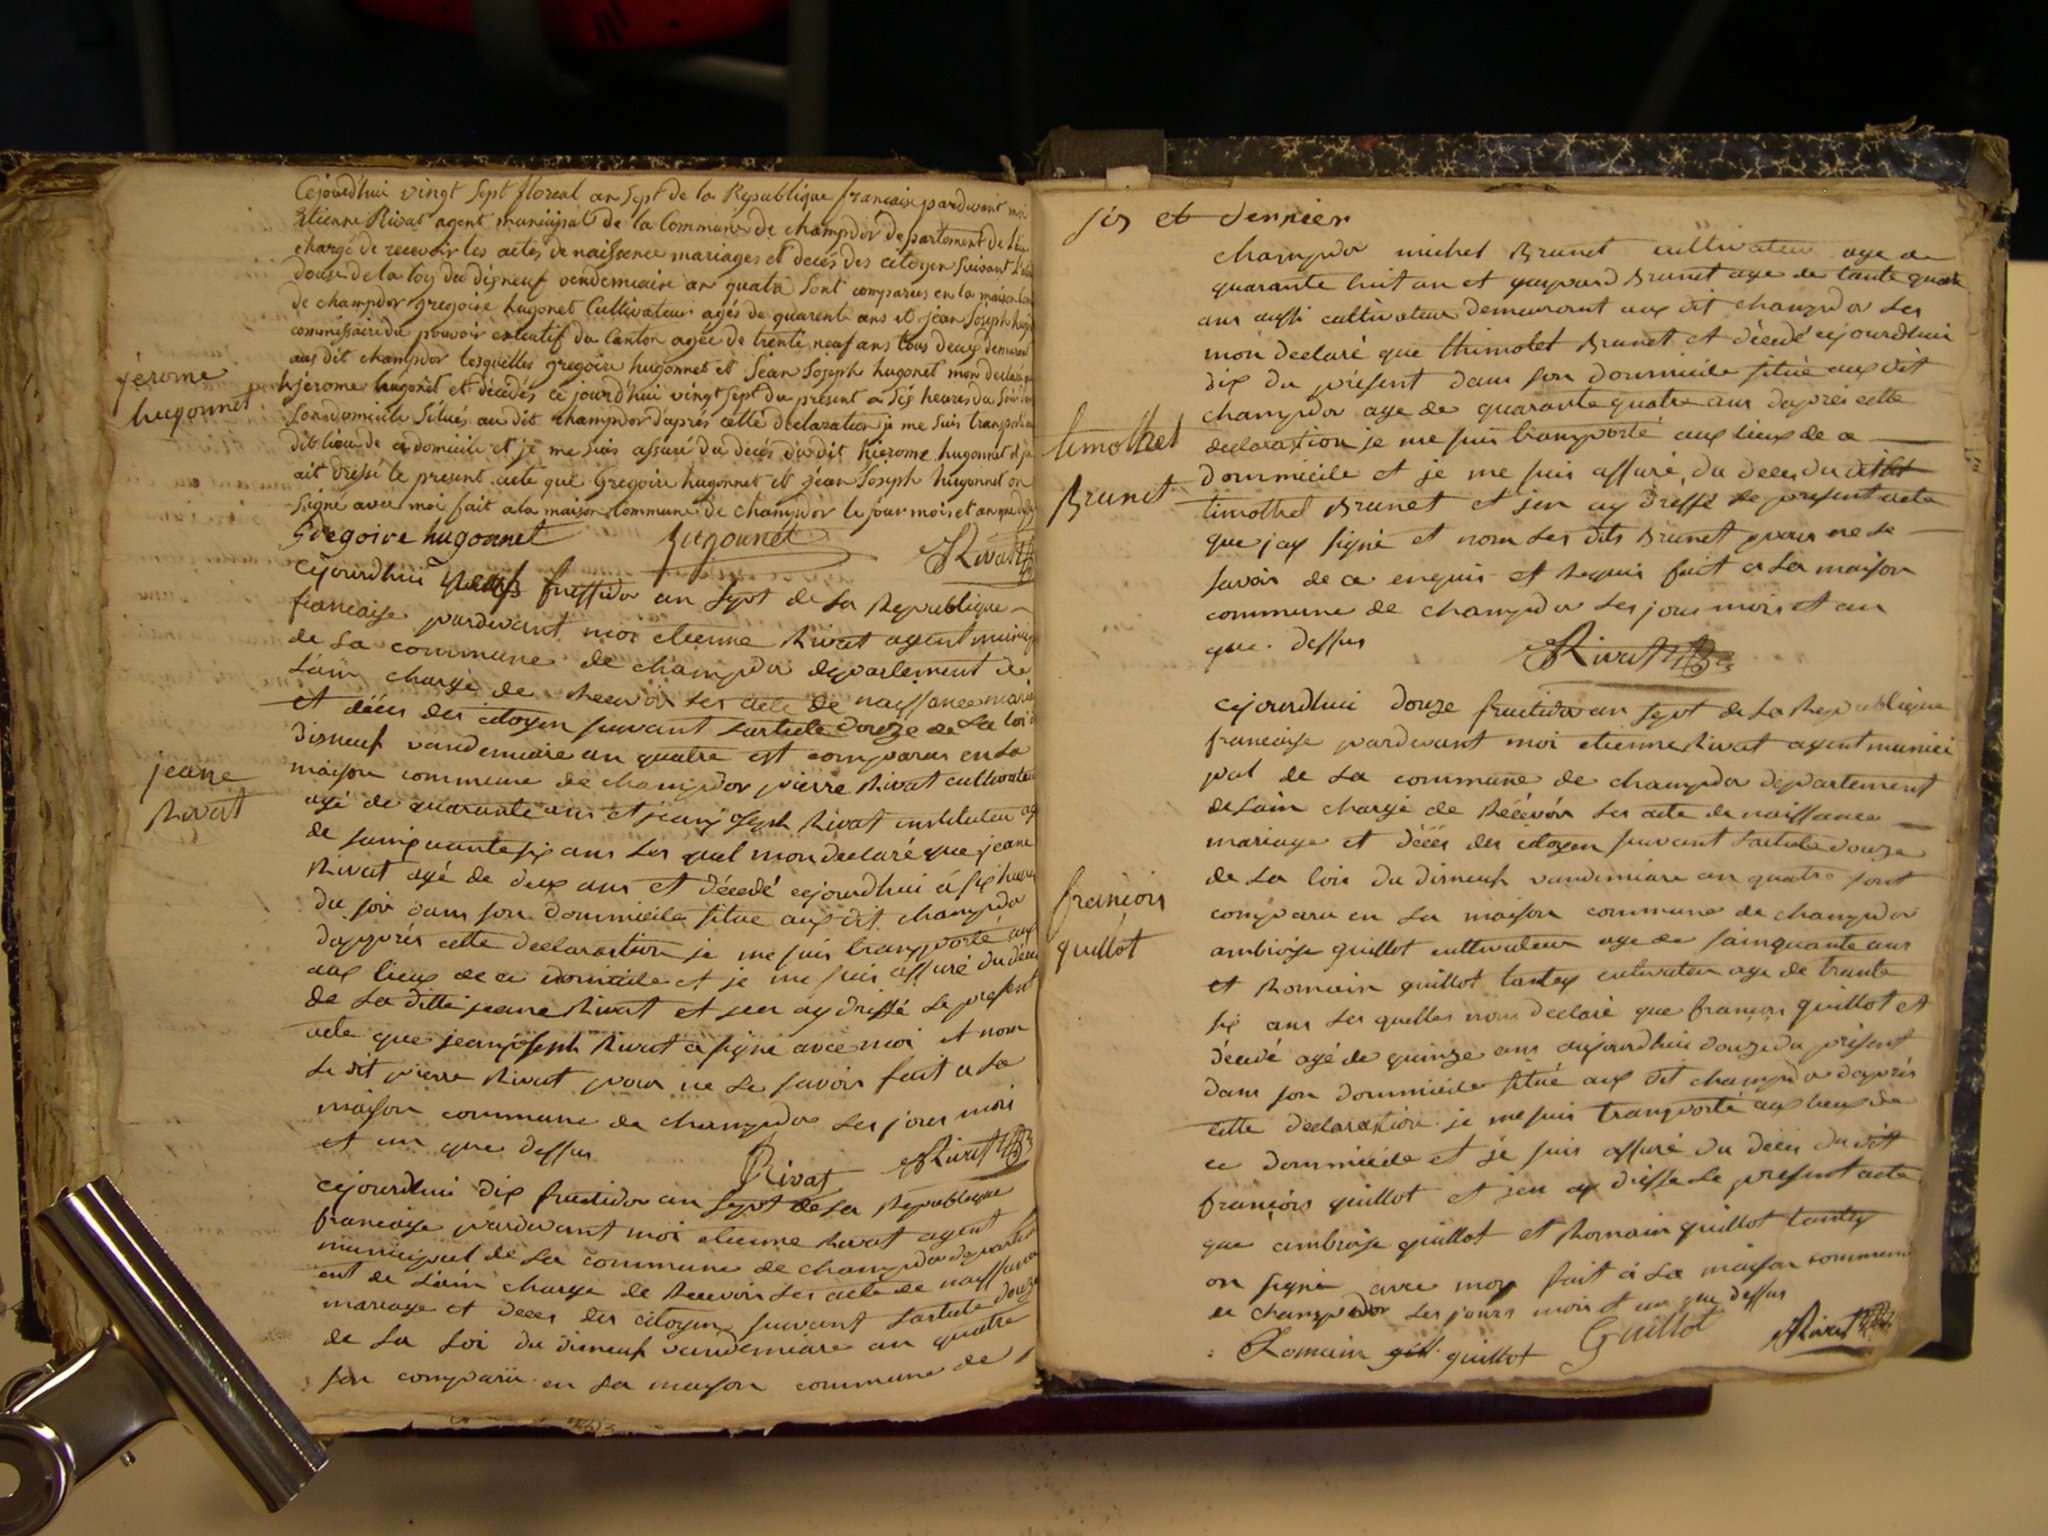 Cejourd'hui vingt sept floreal an sept de la Republique francaise pardevant moi
Etienne Rivat agent municipal de la Commune de champdor departement de l'ain
chargé de recevoir les actes de naissence mariages et decés des citoyen suivant
douze de la loy du digneuf vendemiaire an quatre sont comparus en la maison
de champdor gregoire hugonet Cultivateur agés de quarente ans et jean Joseph
commissaire du pouvoir executif du Canton agée de trente neuf ans tous deux demurant
aus dit champdor lesquelles gregoire hugonnet et Jean Joseph hugonet mon declaré
jérome
hugonnet
hjerome hugonet et décédés ce jourd'hui vingt sept du present a sis heures du soir
son domicile situés au dit champdor d'aprés cette declaration je me suis transporté
dit lieu de domicile et je me suis assuré du decés du dit hierome hugonnet et j'e
ait dressé le present acte que Gregoire hugonnet et jean Joseph hugonnet on
signé avec moi fait a la maison Commune de champdor le jour mois et an que
Gregoire hugonnet hugonnet Rivat
cejourdhui neuf an sept de la Republique
francaise pardevant moi etienne Rivat agent
de la commune de champdor departement de
lain charge de Recevoir les acte de naissance
et décés des citoyen suivant larticle douze de la loi
disneuf vandemiaire an quatre est comparus en la
maison commune de champdor pierre Rivat cultivateur
jeane
Rivat
agé de quarante ans et jean joseph Rivat instituteur
de sainquante six ans les quel mon declaré que jeane
Rivat agé de deux ans et décedé cejourdhui a six heure
du soir dans son dommicile situe aux dit champdor
dapprés cette declarastion je me suis transporté aux
aux lieux de ce domicile et je me suis assuré du déces
de la ditte jeane Rivat et jen ay dressé le present
acte que jean joseph Rivat a signe avec moi et non
le dit pierre Rivat pour ne le savoir fait a la
maison commune de champdor les jour mois
et an que dessus
Rivat Rivat
cejourdhui dix fructidor an sept de la Republique
francaise pardevant moi etienne Rivat agent
municipal de la commune de champdor
ent de lain charge de Recevoir les acte de naissance
mariage et deces des citoyen suivant larticle douze
de la loi du disneuf vandemiaire an quatre
son comparu en la maison commune de
et dernier
champdor michel Brunet cultivateur age de
quarante huit an et Brunet age de tante quatre
ans aussi cultivateur demeurant aux dit champdor les
mon declaré que thimotet Brunet et décedé cejourdhui
dix du présent dans son dommicile situé aux dit
champdor age de quarante quatre ans daprès cette
timothet
Brunet
declarastion je me suis transporté aux lieux de ce
dommicile et je me suis assuré du deces du
timothet Brunet et jen ay dressé le present acte
que jay signé et nom les dits Brunet pour ne le
savoir de ce enquis et Requis fait a la maison
commune de champdor les jour mois et an
que dessus
Rivat
cejourdhui douze fructidor an sept de la Republique
francaise pardevant moi etienne Rivat agent munici
pal de la commune de champdor departement
de lain chargé de Récevoir les acte de naissance
mariage et décés des citoyen suivant larticle douze
de la loi du disneuf vandemiare an quatre sont
françois
guillot
comparu en la maison commune de champdor
ambroise guillot cultivateur age de sainquante ans
et Romain guillot tantey cultivateur age de trante
six ans les quelles mon declaré que françois guillot et
décedé agé de quinze ans aujourdhui douze du présent
dans son dommicile situé aux dit champdor daprés
cette declarastion je me suis transporté aux lieux de
ce dommicile et je suis assuré du déces du dit
françois guillot et jen ay dresse le present acte
que ambroise guillot et Romain guillot tantey
on signé avec moy fait à la maison commune
de champdor les jours mois et an que dessus
Romain guillot Guillot Rivat